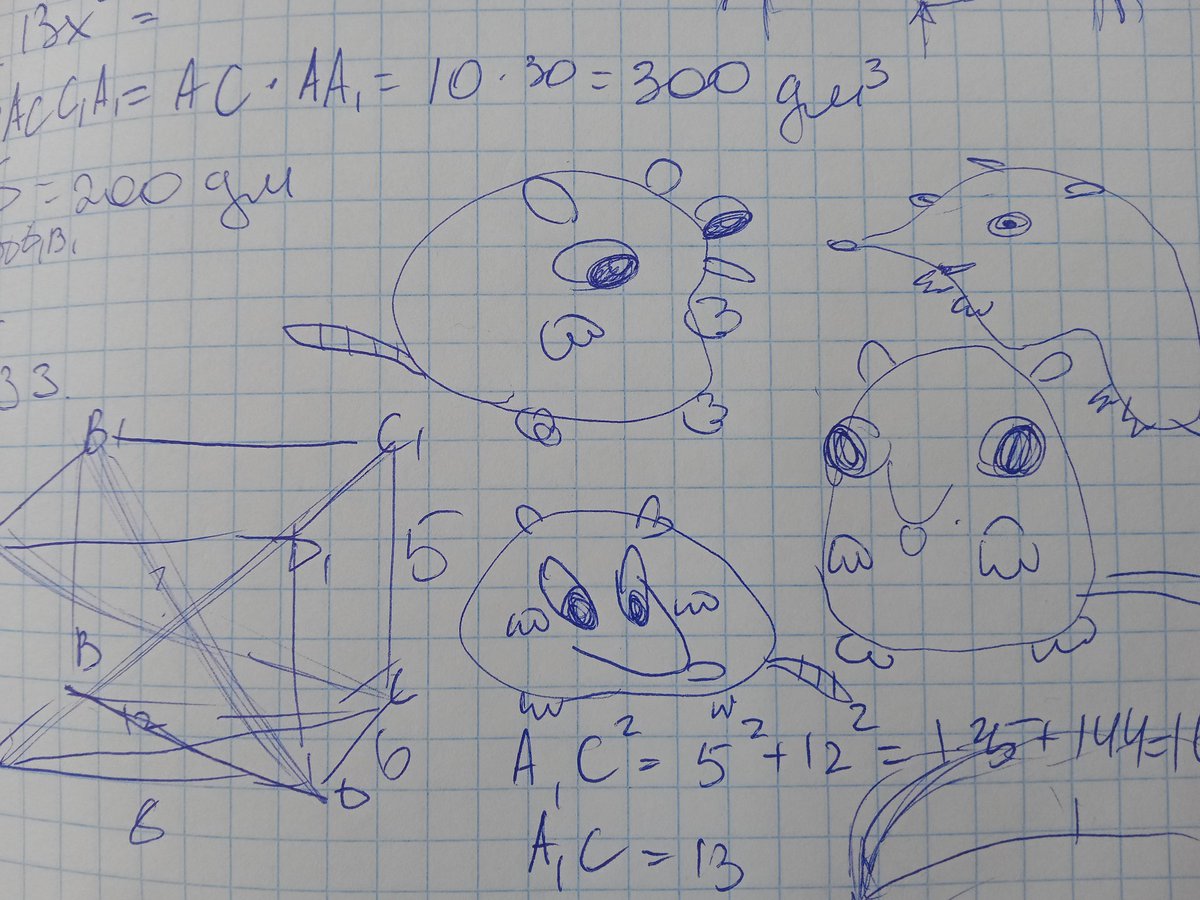 13x² =
ACC₁A₁ = AC · AA₁ = 10 · 30 = 300 дм³
S = 200 дм
33.
B₁
C₁
D₁
5
7
B
C
12
6
D
8
A₁C² = 5² + 12² = 125 + 144 = 16
A₁C = 13
1